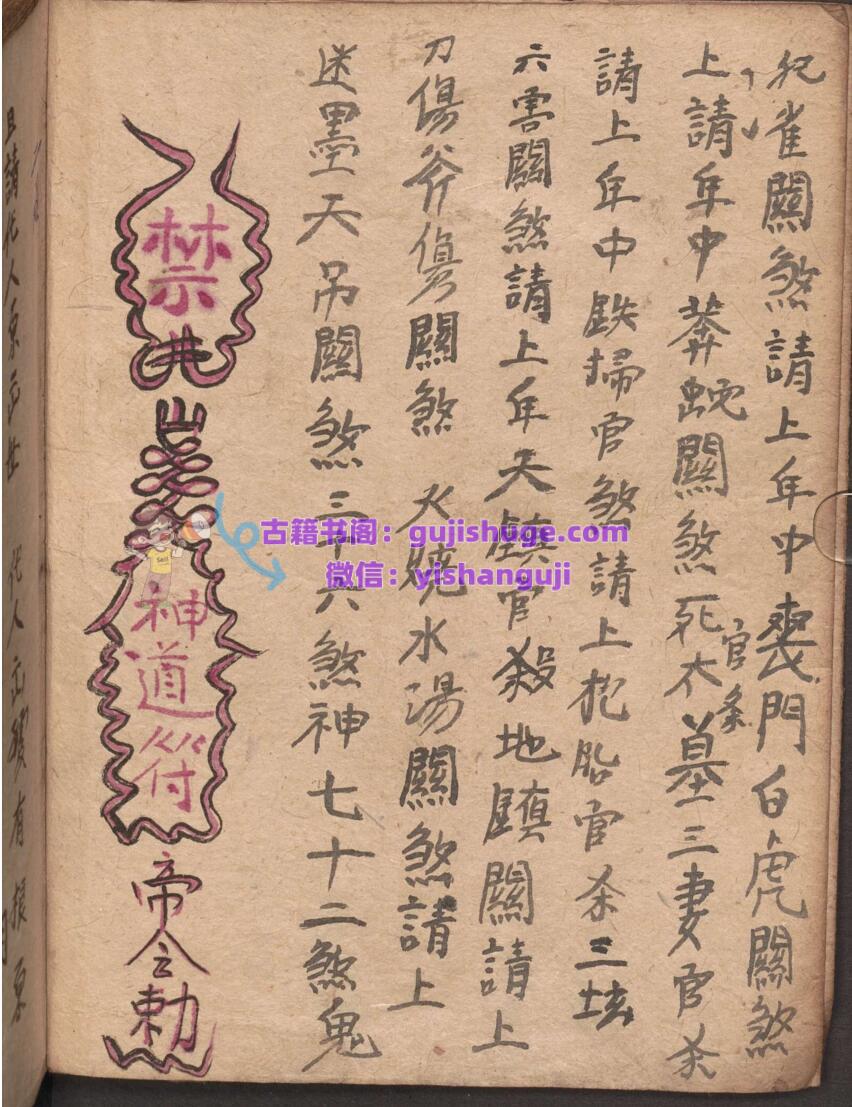 雀關煞請上年中喪門白虎關煞
上請年中莽蛇關煞死木官条墓三妻官杀
請上年中鉄掃官煞請上抱胎官杀三坟
六害關煞請上年天鎮官殺地鎮關請上
刀傷斧傷關煞 火燒水湯關煞請上
迷墨天吊關煞三十六煞神七十二煞鬼
禁
神道符
帝令勅
古籍书阁：gujishuge.com
微信：yishanguji
且請代人
代人 有根原
Sell